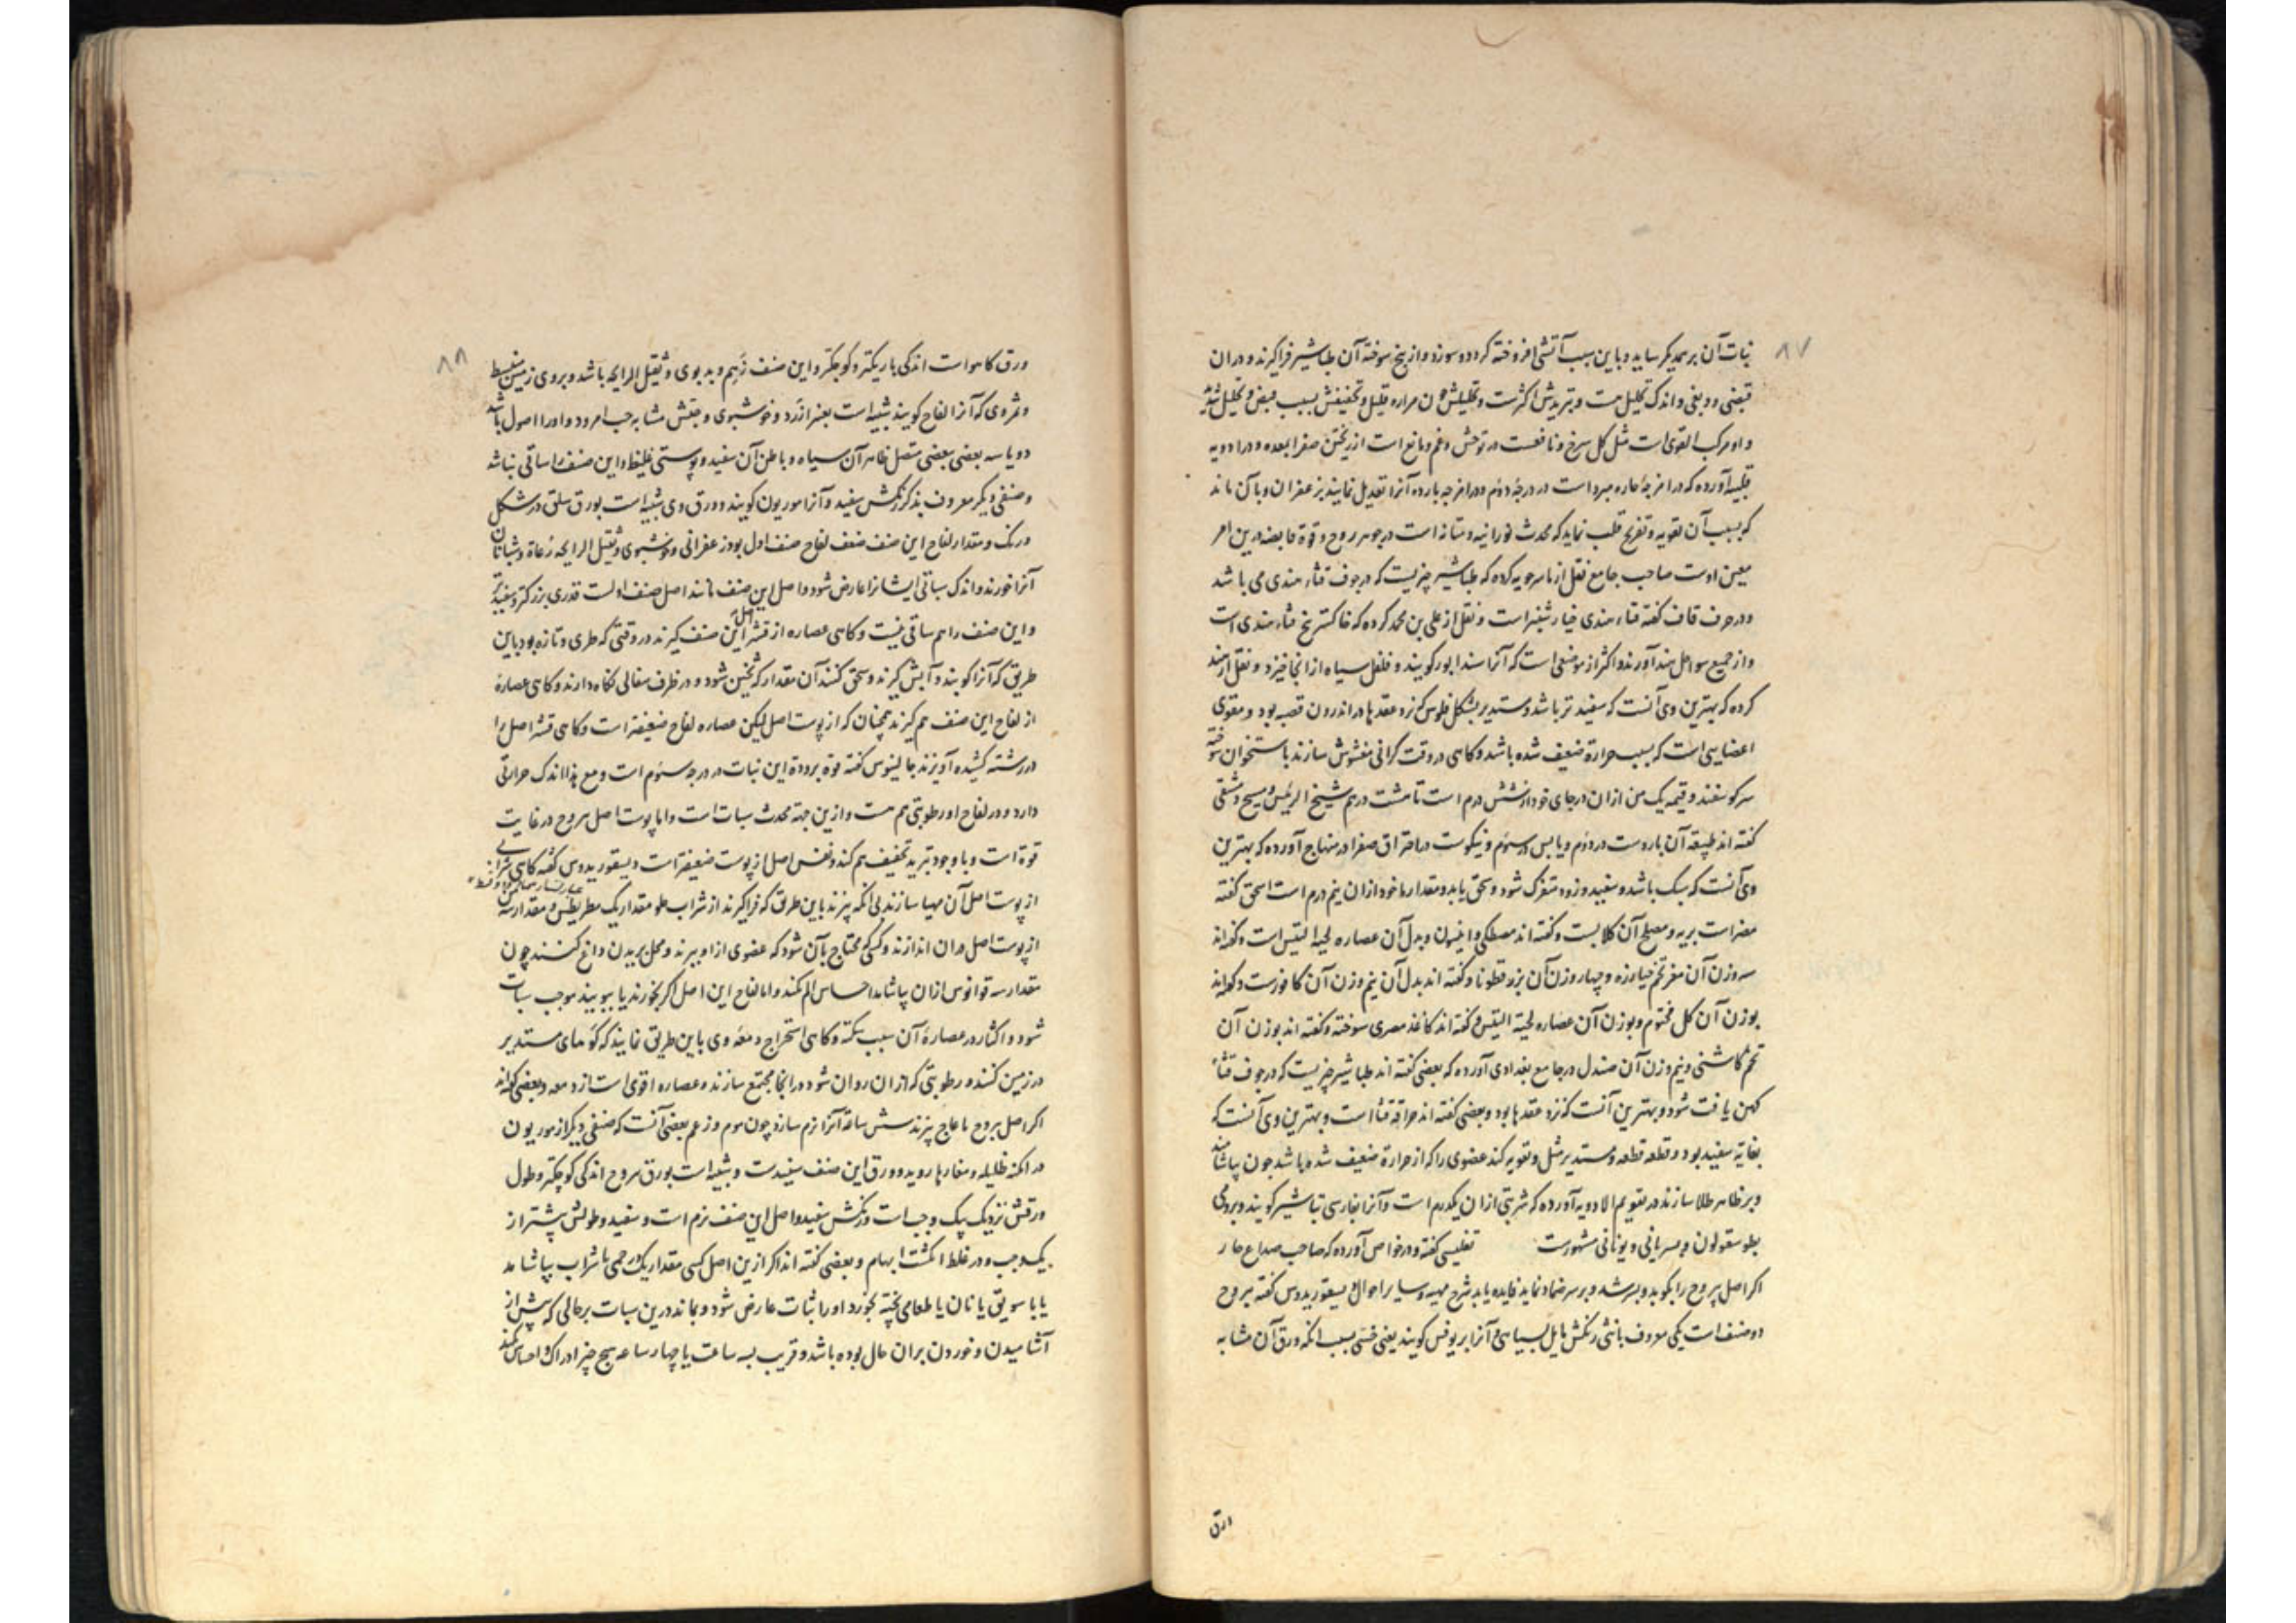 ۸۷
نبات آن بر همدیگر ساید و باین سبب آتشی افروخته گردد و سوزد و از بیخ سوخته آن طباشیر فراگیرند و در آن
قبضی و دبغی و اندک تحلیل هست و تبریدش اکثرست و تحلیلش مراره قلیل و تجفیفش بسبب قبض و تحلیل
و او مرکب القوی است مثل گل سرخ و نافعست در توحش و غم و مانع است از ریختن صفرا بمعده و در ادویه
قلبیه آورده که در امزجهٔ حاره مبرد است در درجهٔ دوم و در امزجه بارده آنرا تعدیل نمایند بزعفران و با آن ماند
که بسبب آن تقویه و تفریح قلب نماید که محدث نورانیه و متانه است در جوهر روح و قوة قابضه درین امر
معین اوست صاحب جامع نقل از ماسرجویه کرده که طباشیر چیزیست که در جوف قثاء هندی می باشد
و در حرف قاف گفته قثاء هندی خیار شنبر است و نقل از علی بن محمد کرده که خاکستر بیخ قثاء هندی است
و از جمیع سواحل هند آورند و اکثر از موضعی است که آنرا سندابور گویند و فلفل سیاه از انجا خیزد و نقل از
کرده که بهترین وی آنست که سفیدتر باشد و مستدیر بشکل فلوس که نزد عقدها در اندرون قصبه بود و مقوی
اعضایی است که بسبب حرارة ضعیف شده باشد و گاهی در وقت گرانی مغشوش سازند باستخوان سوخته
سر گوسفند و قیمه یک من از ان در جای خود از شش درم است تا هشت درهم شیخ الرئیس و مسیح دمشقی
گفته اند طبیعة آن باردست در دوم و یابس در سوم و نیکوست در احتراق صفرا در منهاج آورده که بهترین
وی آنست که سبک باشد و سفید و زود متفرک شود و سحق یابد و مقدار ماخوذ از ان نیم درم است اسحق گفته
مضر است بریه و مصلح آن گلابست و گفته اند مصطکی و انیسون و بدل آن عصاره لحیة التیس است و گفته اند
سه وزن آن مغز تخم خیارزه و چهار وزن آن بزر قطونا و گفته اند بدل آن نیم وزن آن کافورست و گفته اند
بوزن آن گل مختوم و بوزن آن عصاره لحیة التیس و گفته اند کاغذ مصری سوخته و گفته اند بوزن آن
تخم کاسنی و نیم وزن آن صندل در جامع بغدادی آورده که بعضی گفته اند طباشیر چیزیست که در جوف قثاء
کهن یافت شود و بهترین آنست که نزد عقدها بود و بعضی گفته اند حراقة قثا است و بهترین وی آنست که
بغایة سفید بود و قطعه قطعه و مستدیر مثل و تقویه کند عضوی را که از حرارة ضعیف شده باشد چون بیاشامند
و بر ظاهر طلا سازند در تقویم الادویه آورده که شربتی از ان یکدرم است و آنرا بفارسی تباشیر گویند و برومی
بطوسقولون و بسریانی و یونانی مشهورست تفلیسی گفته و در خواص آورده که صاحب صداع حار
اگر اصل یبروح را بکوبد و بسرشد و بر سر ضماد نماید فایده یابد شرح مهیه و سایر احوال دیسقوریدوس گفته یبروح
دو صنف است یکی معروف بانثی رنگش مایل بسیاهی و آنرا بریوفس گویند یعنی خسی بسبب انکه ورق آن مشابه
ورق
۸۸
ورق کاهو است اندکی باریکتر و کوچکتر و این صنف زهم و بدبوی و ثقیل الرایحه باشد و بروی زمین منبسط
و ثمر وی که آنرا لفاح گویند شبیه است بغبیرا زرد و خوشبوی و حبش مشابه حب امرود و او را اصول باشد
دو یا سه بعضی ببعضی متصل ظاهر آن سیاه و باطن آن سفید و پوستی غلیظ و این صنف را ساقی نباشد
و صنفی دیگر معروف بذکر رنگش سفید و آنرا موریون گویند و ورق وی شبیه است بورق سلق در شکل
و رنگ و مقدار لفاح این صنف ضعف لفاح صنف اول بود زعفرانی و خوشبوی و ثقیل الرایحه رعاة و شبانان
آنرا خورند و اندک سباتی ایشانرا عارض شود و اصل این صنف مانند اصل صنف اولست قدری بزرگتر و سفیدتر
و این صنف را هم ساقی نیست و گاهی عصاره از قشر اصل این صنف گیرند در وقتی که طری و تازه بود باین
طریق که آنرا کوبند و آبش گیرند و سحق کنند آن مقدار که ثخین شود و در ظرف سفالی نگاه دارند و گاهی عصارهٔ
از لفاح این صنف هم گیرند همچنان که از پوست اصل لیکن عصاره لفاح ضعیفه است و گاهی قشر اصل را
در رشته کشیده آویزند جالینوس گفته قوة برودة این نبات در درجه سوم است و مع هذا اندک حرارتی
دارد و در لفاح او رطوبتی هم هست و ازین جهة محدث سبات است و اما پوست اصل یبروح در غایت
قوة است و با وجود تبرید تجفیف هم کند و نفس اصل از پوست ضعیفه است دیسقوریدوس گفته گاهی شرابی
از پوست اصل آن مهیا سازند بی آنکه پزند باین طریق که فراگیرند از شراب حلو مقدار یک مطریطس و مقدار سه
از پوست اصل در ان اندازند و کسی که محتاج بآن شود که عضوی از او ببرند و محل بریدن داغ کنند چون
مقدار سه قوانوس از ان بیاشامد احساس الم نکند و اما لفاح این اصل اگر بخورند یا ببویند موجب سبات
شود و اکثار در عصارهٔ آن سبب سکته و گاهی استخراج دمعه وی باین طریق نمایند که گوهای مستدیر
در زمین کنند و رطوبتی که از ان روان شود در انجا مجتمع سازند و عصاره اقوی است از دمعه و بعضی گفته اند
اگر اصل یبروح با عاج پزند شش ساعة آنرا نرم سازد چون موم و زعم بعضی آنست که صنفی دیگر از موریون
در امکنه ظلیله و مغارها روید و ورق این صنف سفیدست و شبیه است بورق یبروح اندکی کوچکتر و طول
ورقش نزدیک بیک وجب است و رنگش سفید و اصل این صنف نرم است و سفید و طولش بیشتر از
یک وجب و در غلظ انگشت ابهام و بعضی گفته اند اگر ازین اصل کسی مقدار یک درخمی با شراب بیاشامد
یا با سویق یا نان یا طعامی پخته بخورد او را سبات عارض شود و بماند درین سبات بر حالی که پیش از
آشامیدن و خوردن بران حال بوده باشد و قریب بسه ساعت یا چهار ساعه هیچ چیز ادراک و احساس نکند